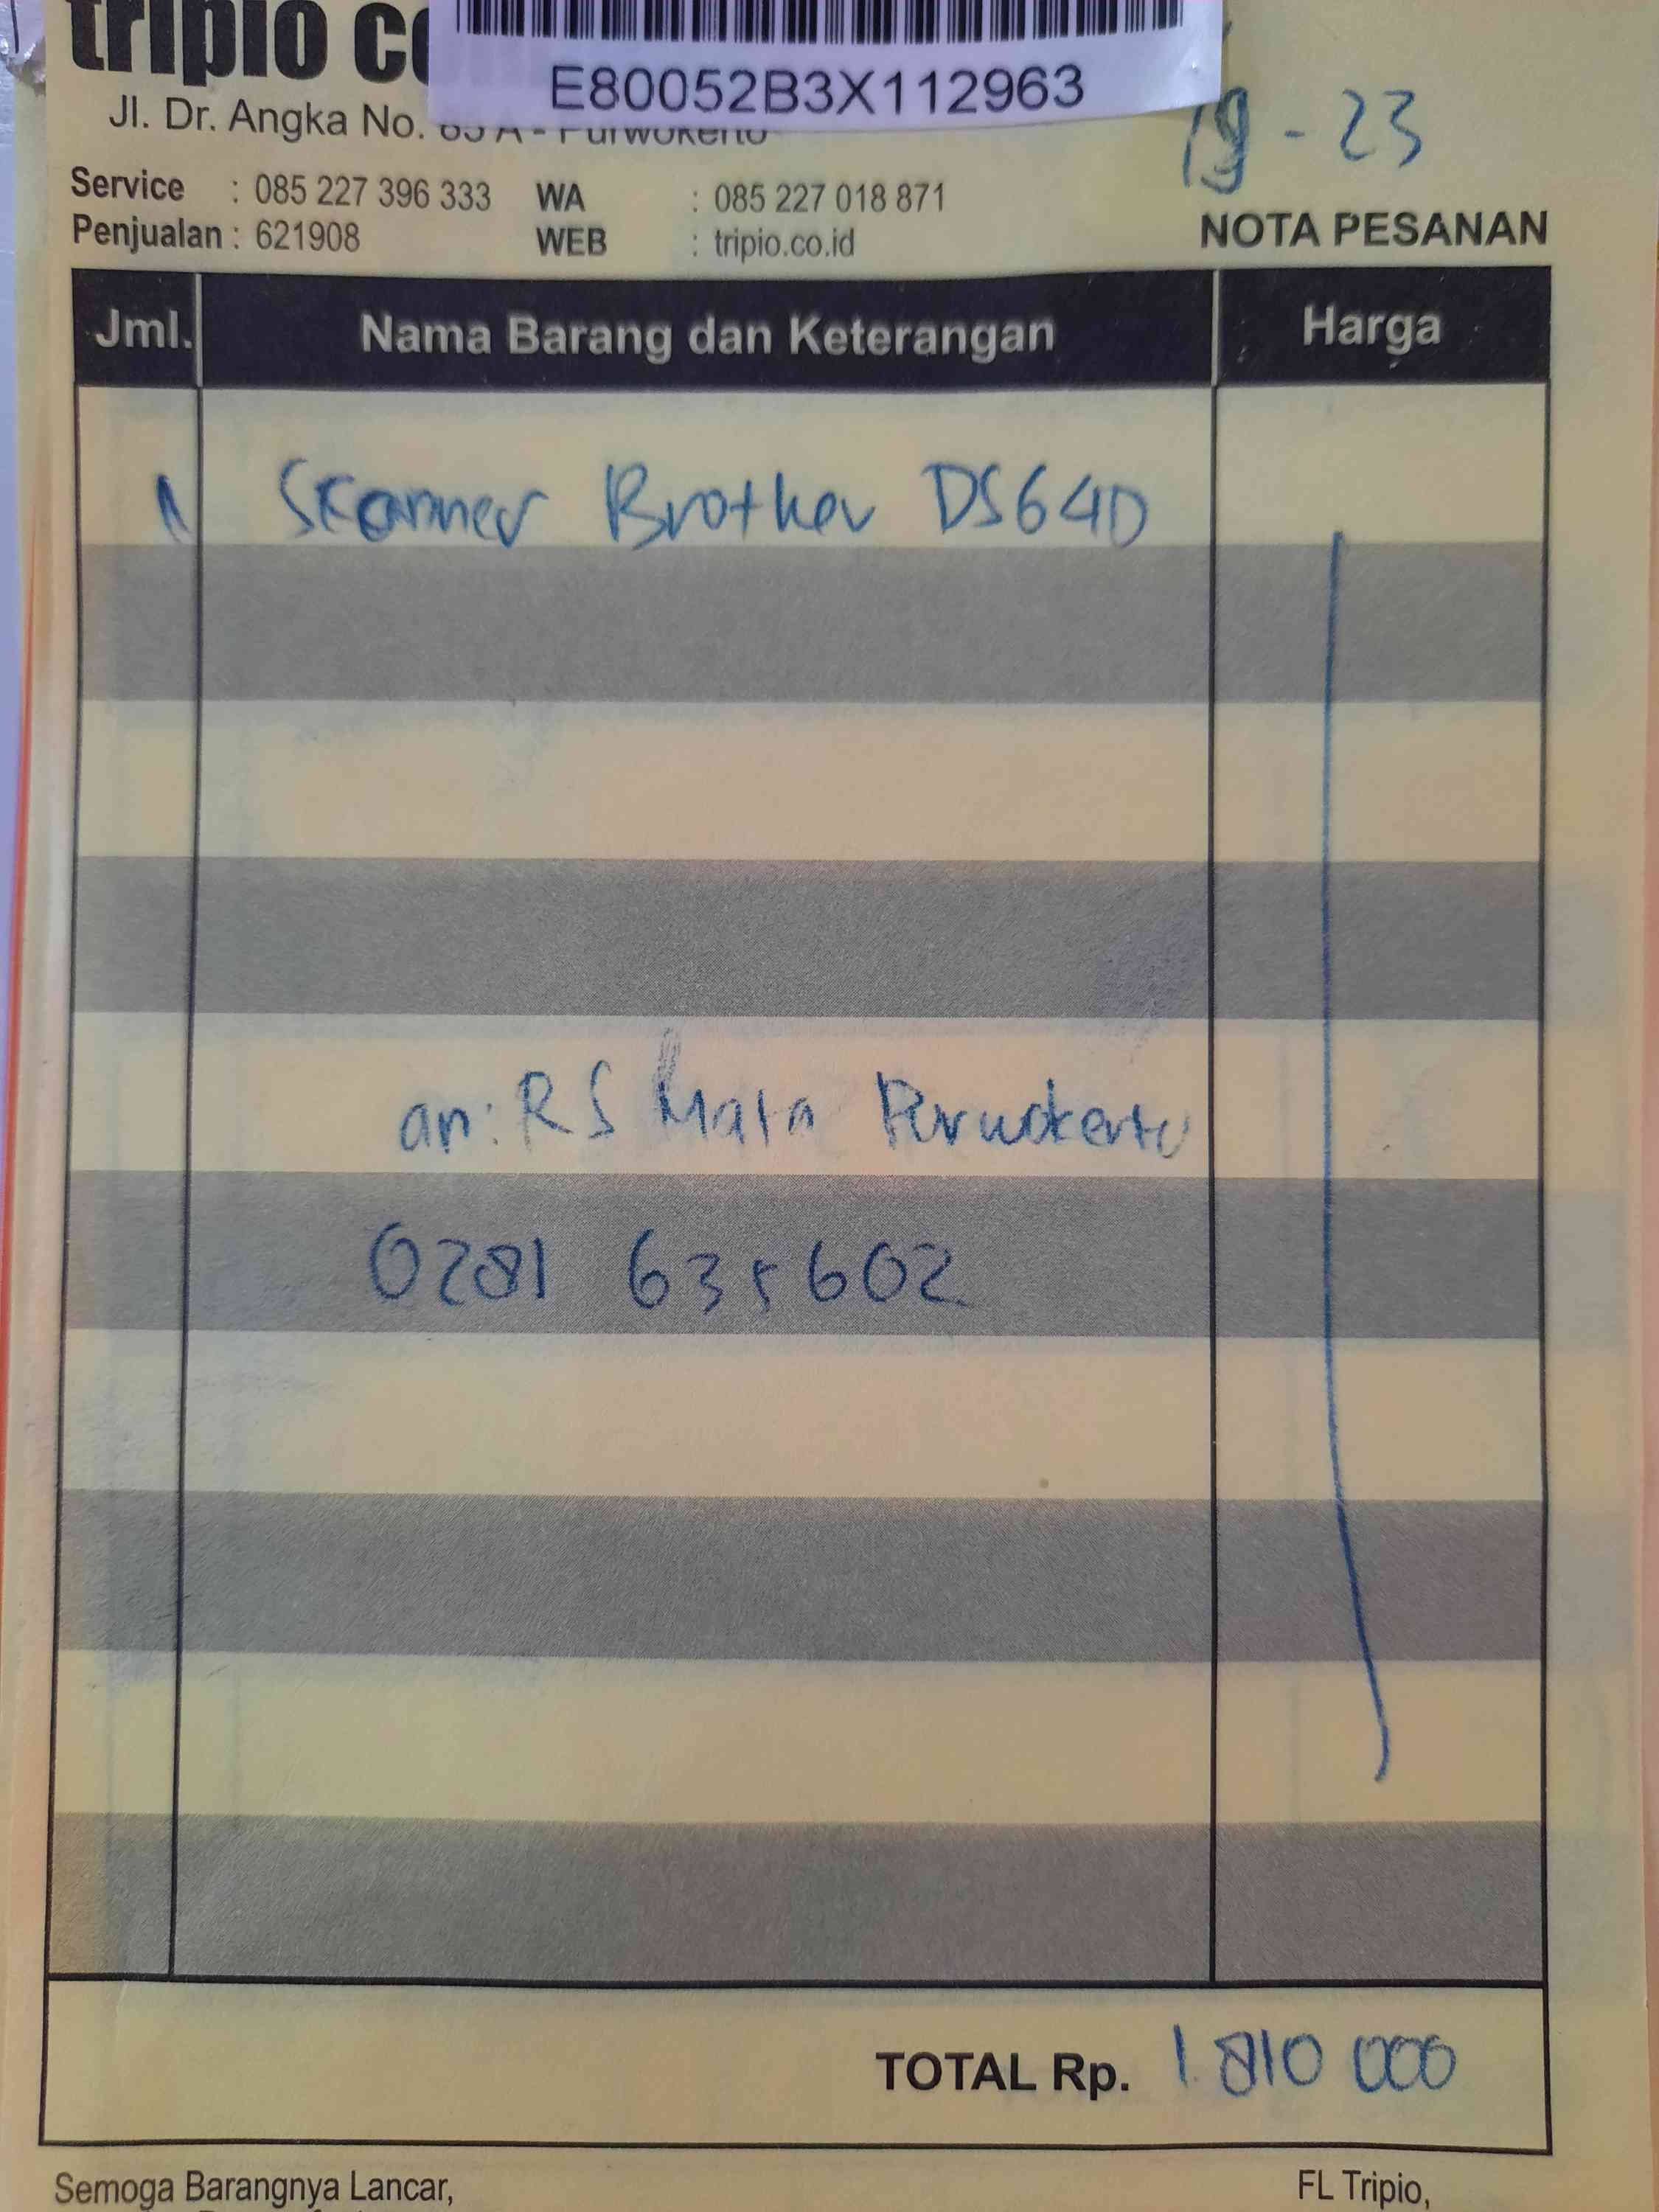 tripio
E80052B3X112963
Jl. Dr. Angka No. 65 A - Purwokerto
19 - 23
Service : 085 227 396 333 WA : 085 227 018 871
Penjualan : 621908 WEB : tripio.co.id
NOTA PESANAN
Jml. Nama Barang dan Keterangan Harga
1 Skanner Brother DS640
an: RS Mata Purwokerto
0281 635602
TOTAL Rp. 1.810 000
Semoga Barangnya Lancar, FL Tripio,